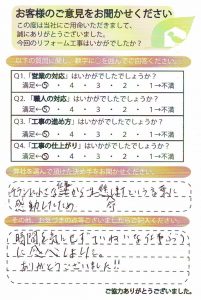 お客様のご意見をお聞かせください
この度は当社にご用命いただきまして、
誠にありがとうございました。
今回のリフォーム工事はいかがでしたか?
以下の質問に関し、数字に○を囲んでご回答ください
Q1.「営業の対応」はいかがでしたでしょうか?
満足←5・4・3・2・1→不満
Q2.「職人の対応」はいかがでしたでしょうか?
満足←5・4・3・2・1→不満
Q3.「工事の進め方」はいかがでしたでしょうか?
満足←5・4・3・2・1→不満
Q4.「工事の仕上がり」はいかがでしたでしょうか?
満足←5・4・3・2・1→不満
弊社を選んで頂けた決め手をお聞かせください。
感動したため
その他、お気づきの点等ございましたらご記入ください。
時間を気にせず
ありがとうございました!!
ご協力ありがとうございました。